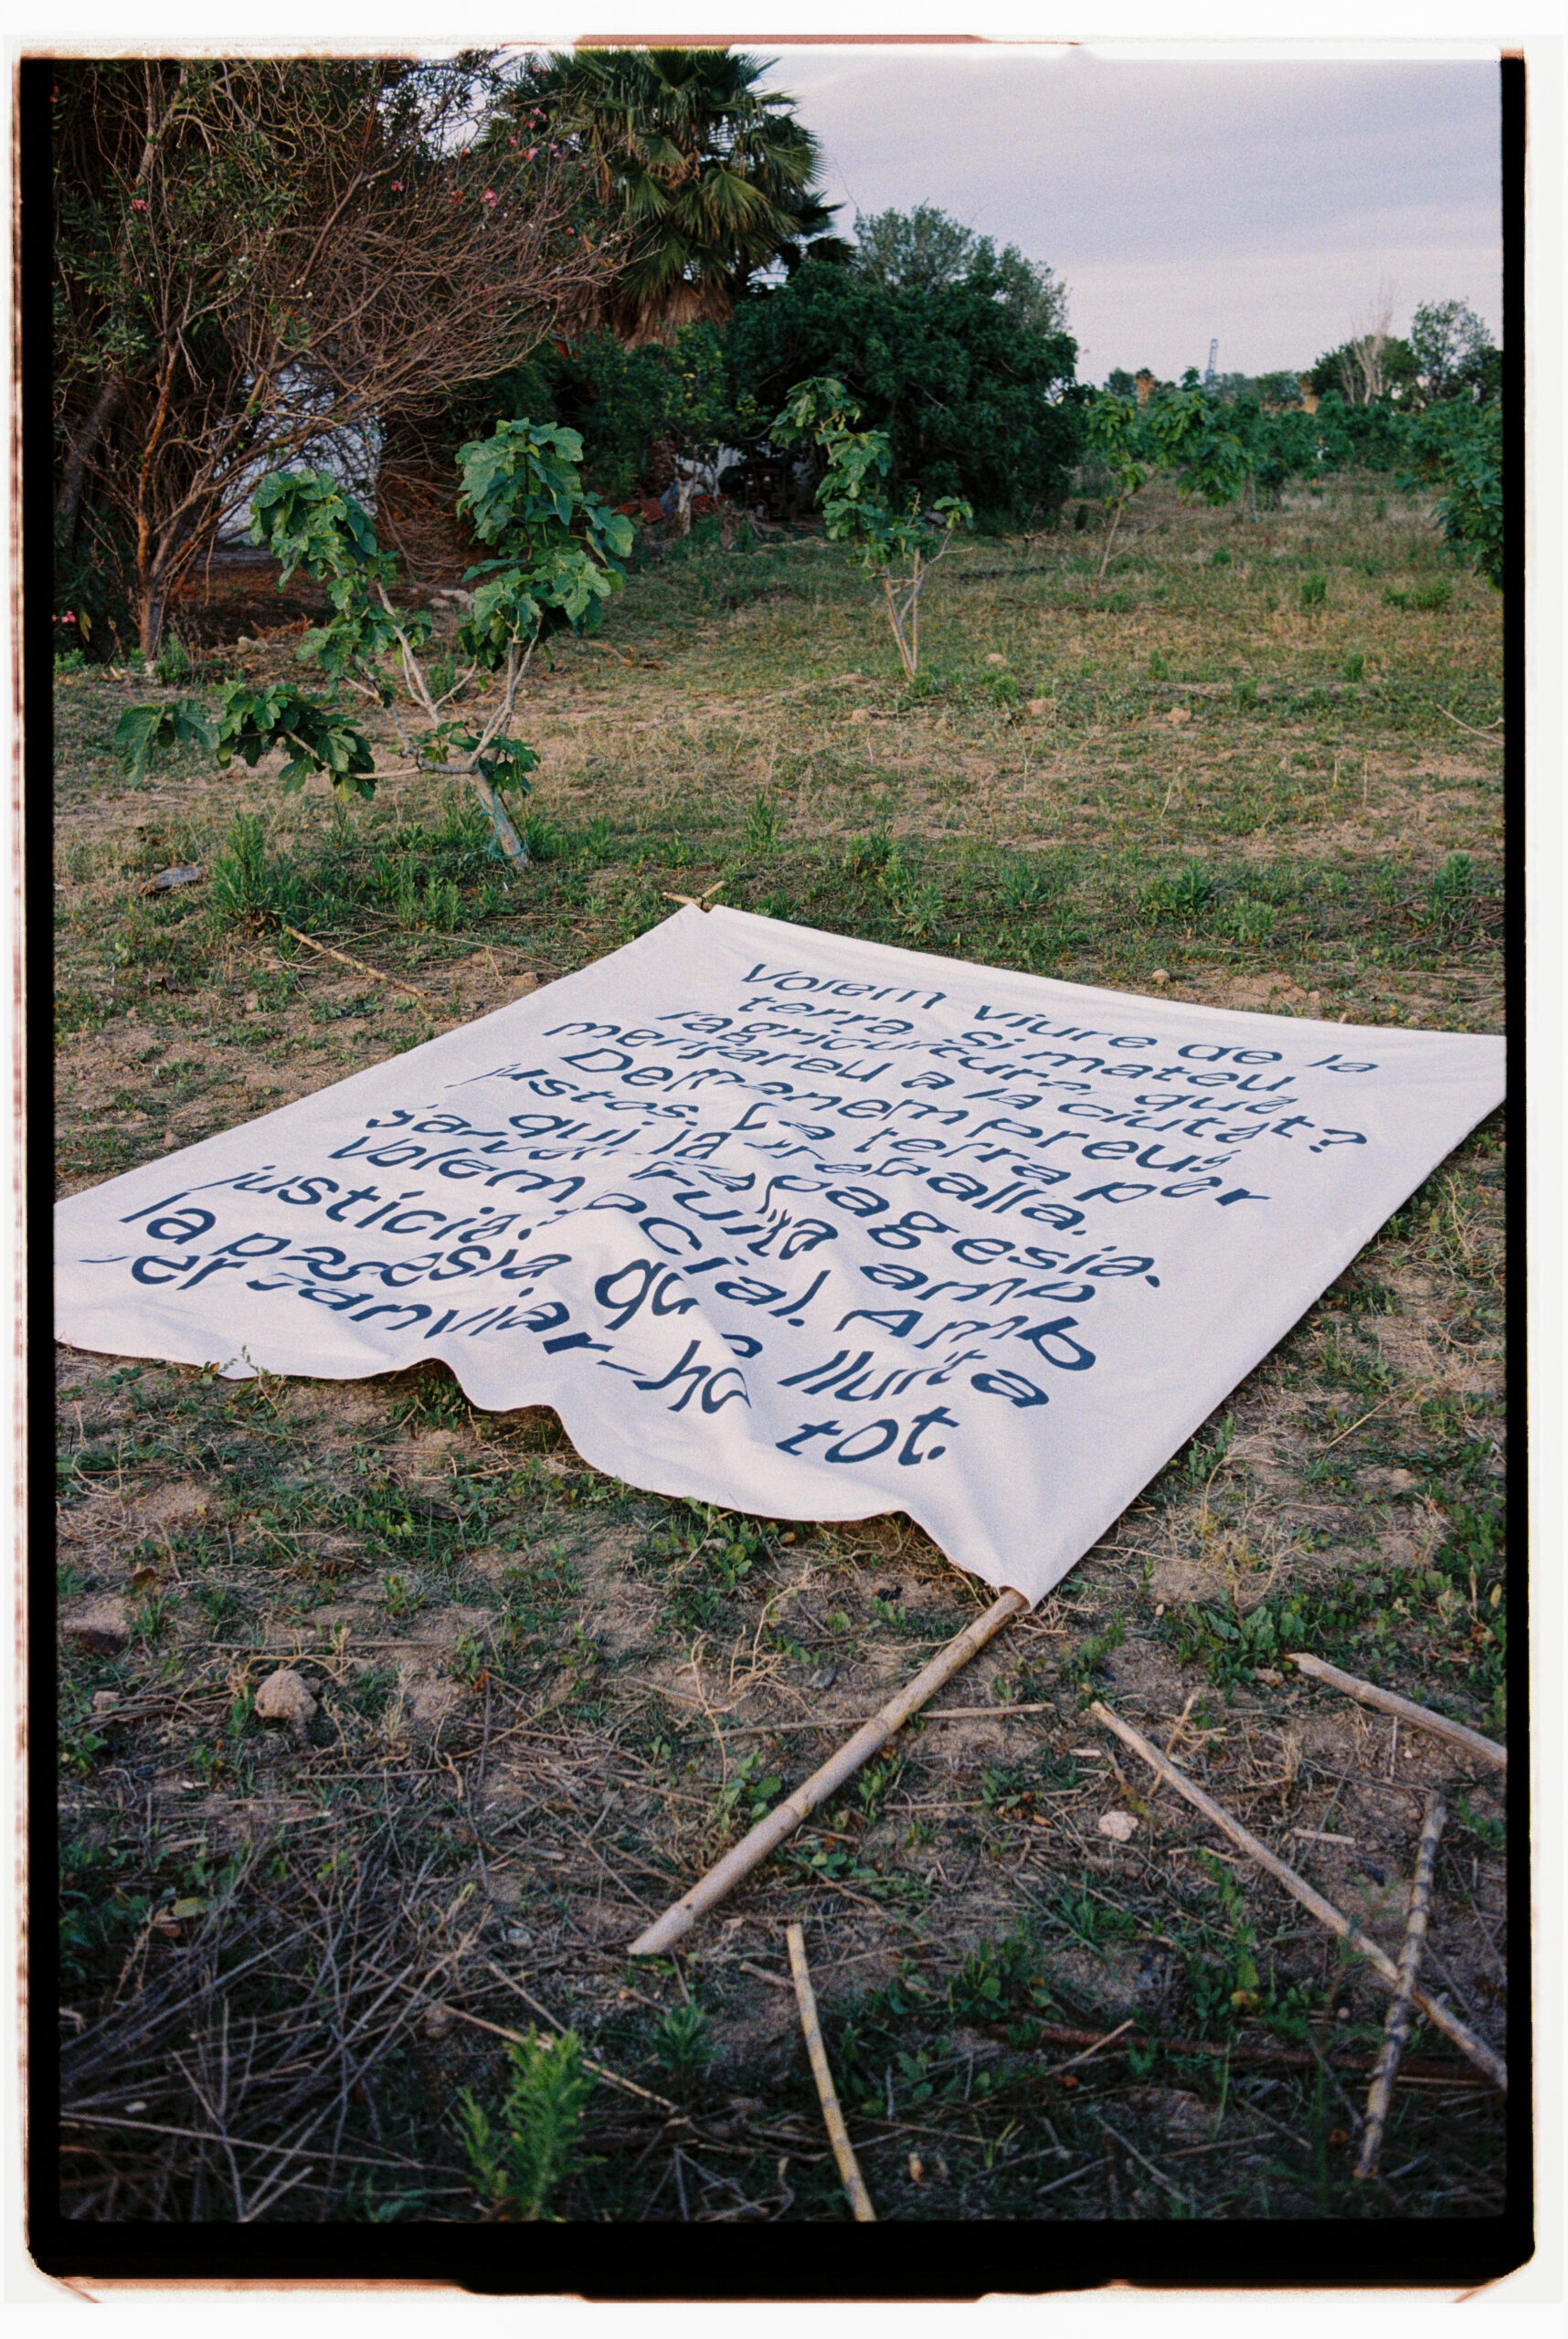 Volem viure de la
terra. Si mateu
l'agricultura, què
menjareu a la ciutat?
Demanem preus
justos. La terra per
qui la treballa.
Salvem la pagesia.
Volem fruita amb
justícia social. Amb
la pagesia que lluita
per canviar-ho tot.